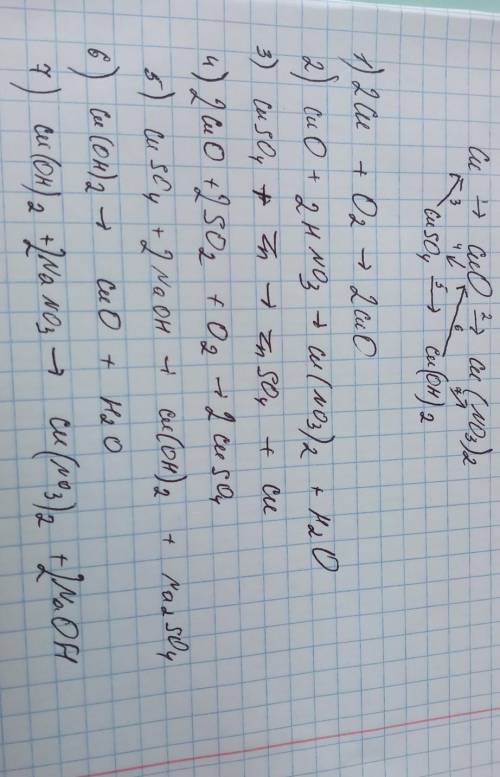 Cu 1→ CuO 2→ Cu(NO3)2
3 4 6 7
CuSO4 5→ Cu(OH)2
1) 2Cu + O2 → 2CuO
2) CuO + 2HNO3 → Cu(NO3)2 + H2O
3) CuSO4 + Zn → ZnSO4 + Cu
4) 2CuO + 2SO2 + O2 → 2CuSO4
5) CuSO4 + 2NaOH → Cu(OH)2 + Na2SO4
6) Cu(OH)2 → CuO + H2O
7) Cu(OH)2 + 2NaNO3 → Cu(NO3)2 + 2NaOH